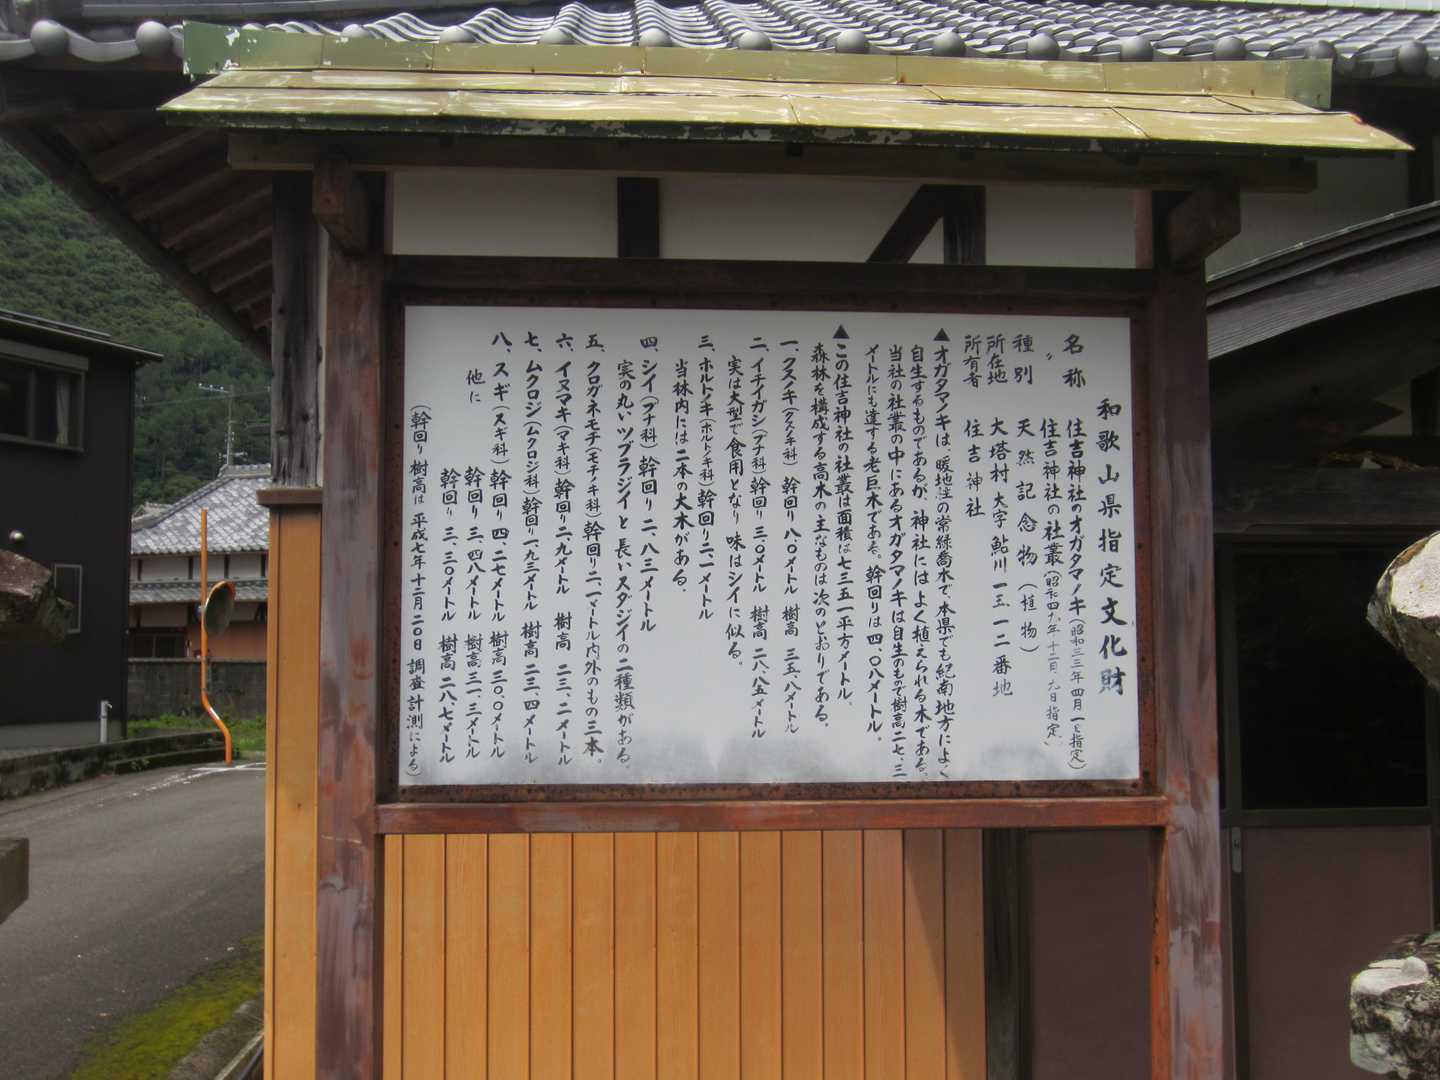 和歌山県指定文化財
名称 住吉神社のオガタマノキ(昭和三三年四月一日指定)
〃 住吉神社の社叢(昭和四九年十二月九日指定)
種別 天然記念物(植物)
所在地 大塔村大字鮎川一三一二番地
所有者 住吉神社
▲オガタマノキは、暖地性の常緑喬木で、本県でも紀南地方によく
自生するものであるが、神社にはよく植えられる木である。
当社の社叢の中にあるオガタマノキは自生のもので樹高二七、三
メートルにも達する老巨木である。幹回りは四、〇八メートル。
▲この住吉神社の社叢は面積は七三五一平方メートル、
森林を構成する高木の主なものは次のとおりである。
一、クスノキ(クスノキ科) 幹回り八、〇メートル 樹高 三五、八メートル
二、イチイガシ(ブナ科) 幹回り三、〇メートル 樹高 二八、八五メートル
実は大型で食用となり味はシイに似る。
三、ホルトノキ(ホルトノキ科) 幹回り二、一メートル
当林内には二本の大木がある。
四、シイ(ブナ科) 幹回り 二、八三メートル
実の丸いツブラジイと長いスダジイの二種類がある。
五、クロガネモチ(モチノキ科) 幹回り二、一マートル内外のもの三本。
六、イヌマキ(マキ科) 幹回り二、九メートル 樹高 二三、二メートル
七、ムクロジ(ムクロジ科) 幹回り一、九三メートル 樹高 二三、四メートル
八、スギ(スギ科) 幹回り 四、二七メートル 樹高 三〇、〇メートル
他に 幹回り 三、四八メートル 樹高 三一、三メートル
幹回り 三、三〇メートル 樹高 二八、七メートル
(幹回り 樹高は 平成七年十二月二〇日 調査計測による)